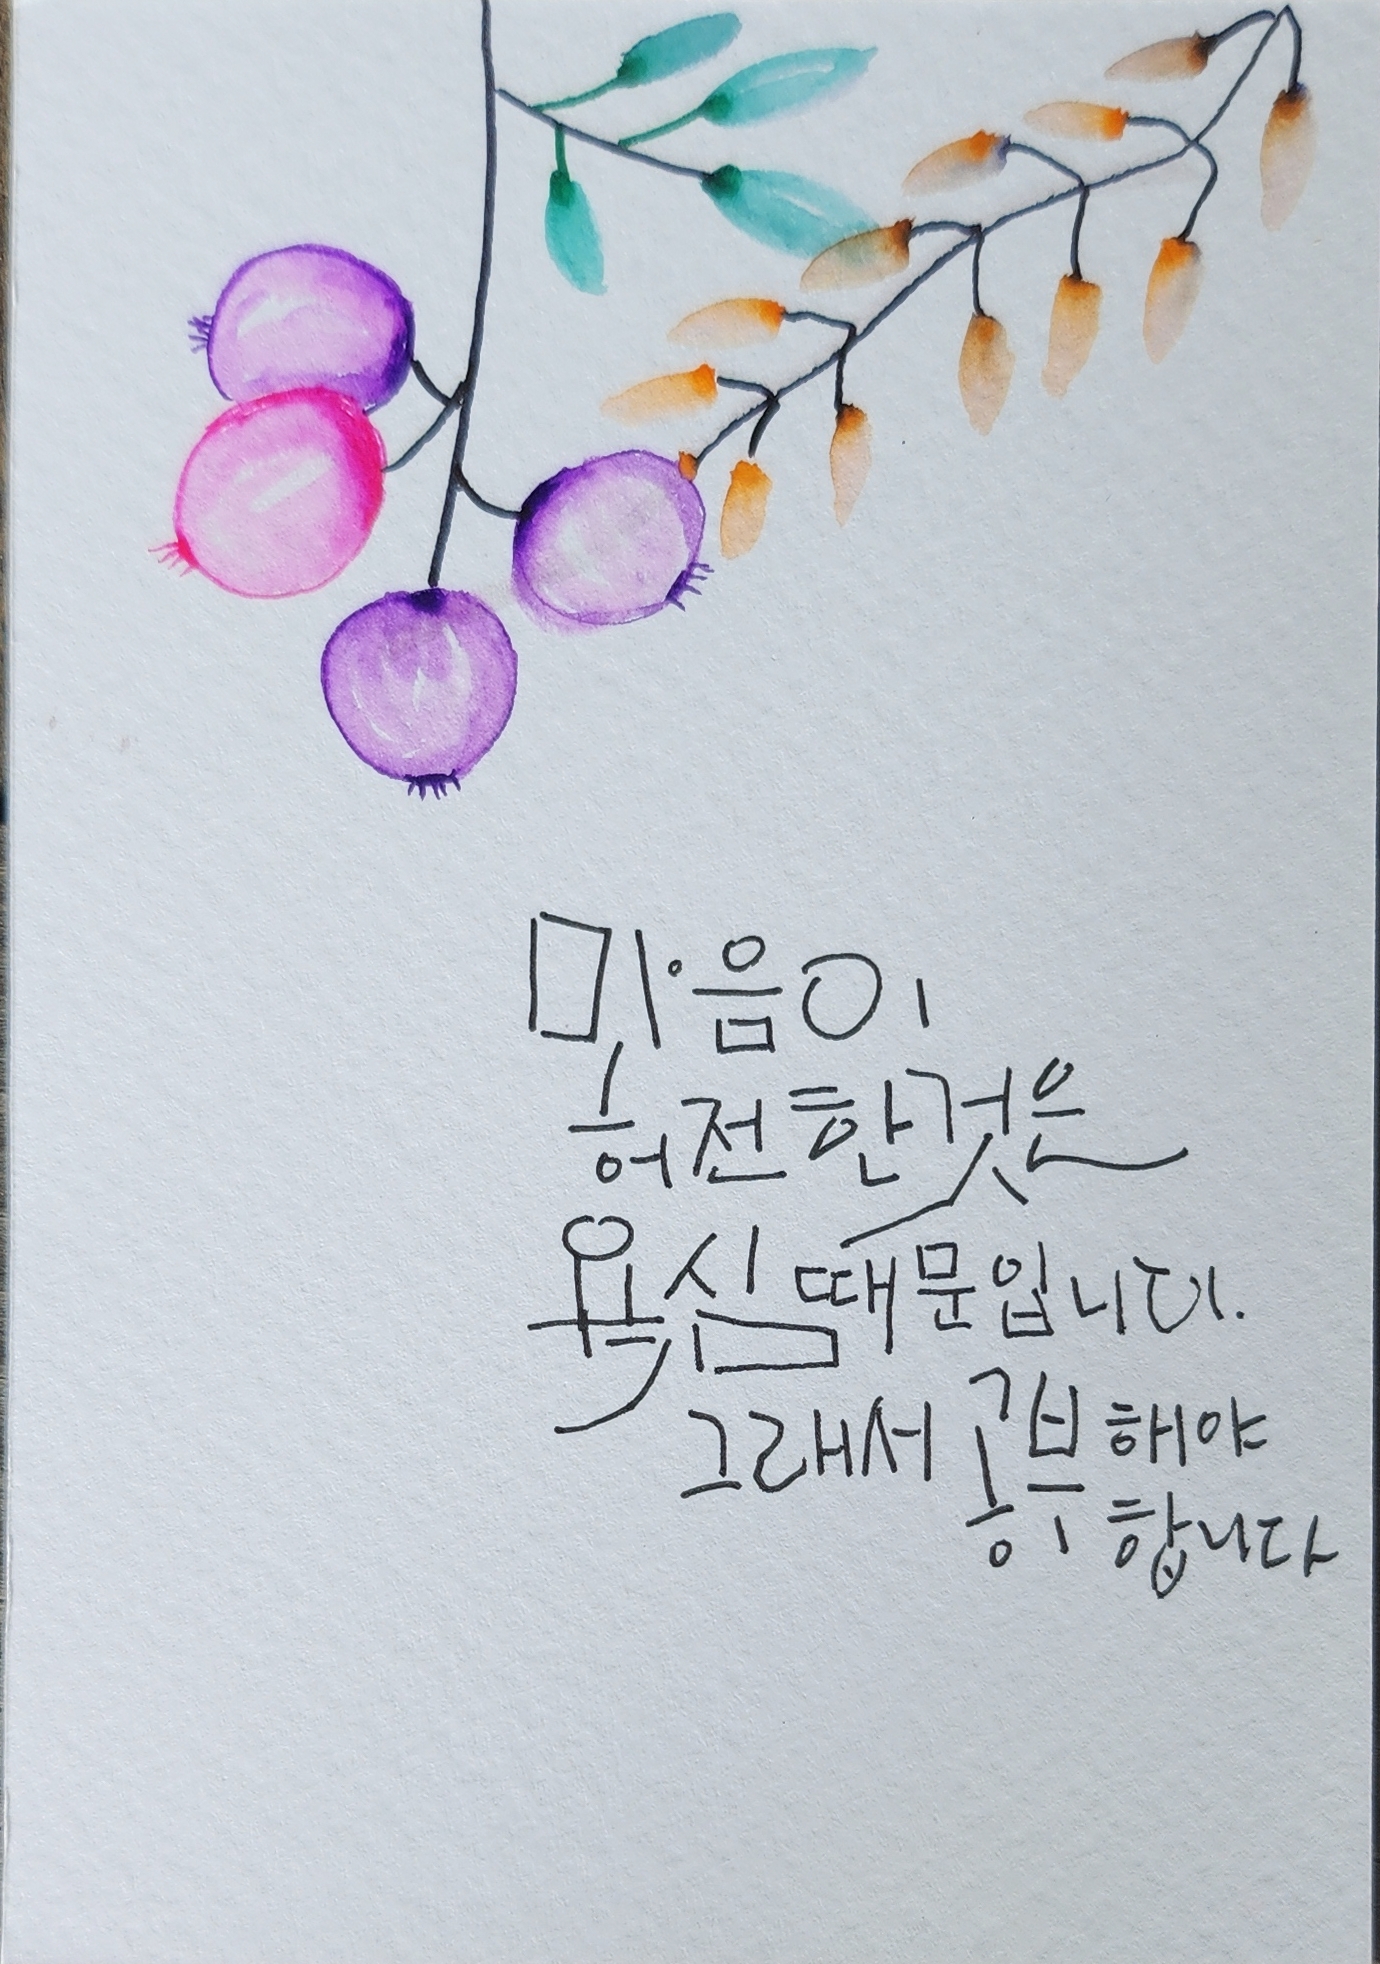 마음이
허전한것은
욕심때문입니다.
그래서 공부해야
합니다